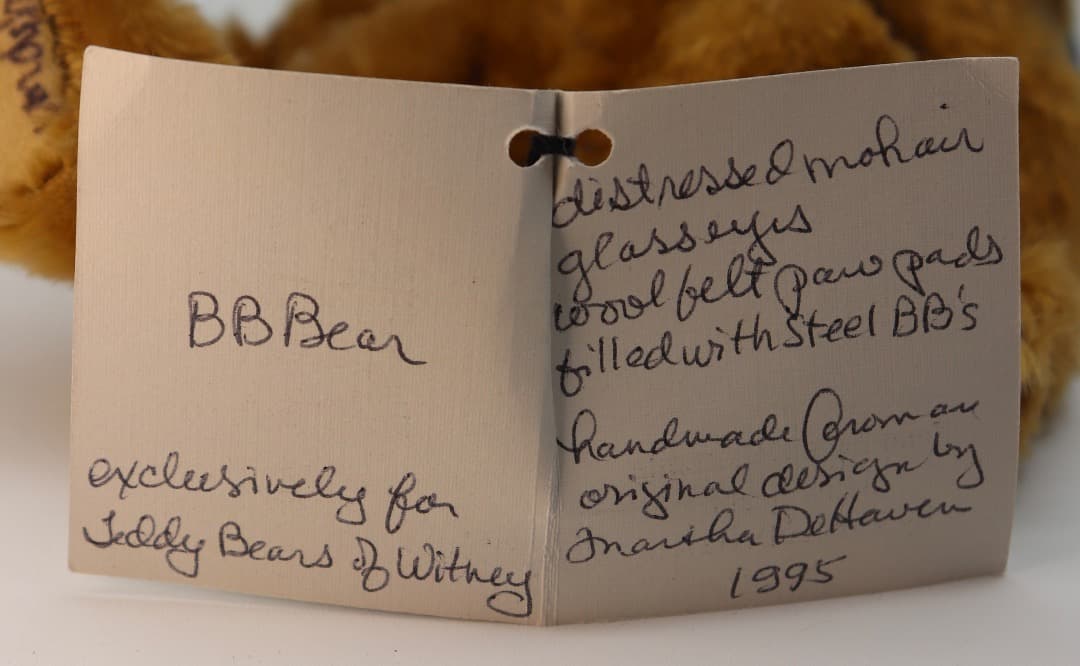 BB Bear
exclusively for
Teddy Bears of Witney
distressed mohair
glass eyes
wool felt paw pads
filled with steel BB's
handmade from an
original design by
Martha DeHaven
1995